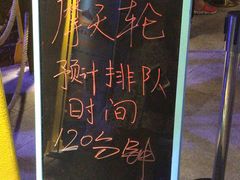 摩天轮
预计排队
时间
120分钟